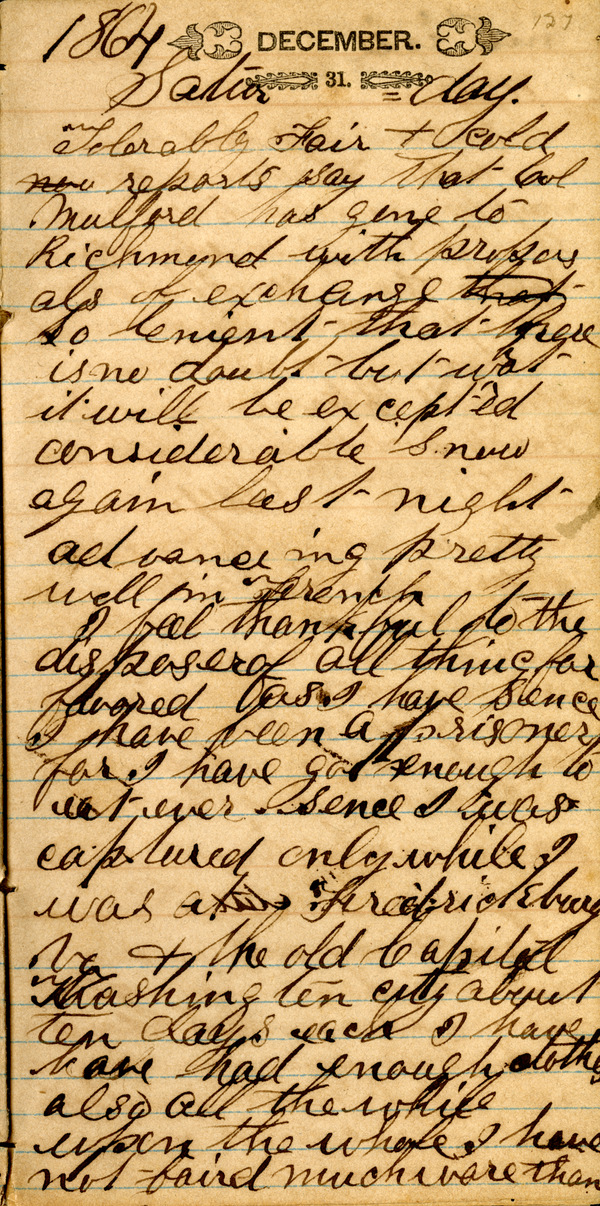 1864 DECEMBER. 127
Satur 31. = day.
Tolerably Fair + cold
now reports say that Col
Mulford has gone to
Richmond with propos
als of exchange that
so lenient that there
is no doubt but wat
it will be excepted
considerable Snow
again last night
advancing pretty
well in French
I feel thankful to the
disposer of all thing for
favored as I have sence
I have been a prisoner
for I have got enough to
eat ever sence I was
captured only while I
was at Fredricksburg
Va + the old Capitol
Washington city about
ten days each I have
have had enough clothe
also all the while
upon the whole I have
not faird much ware than